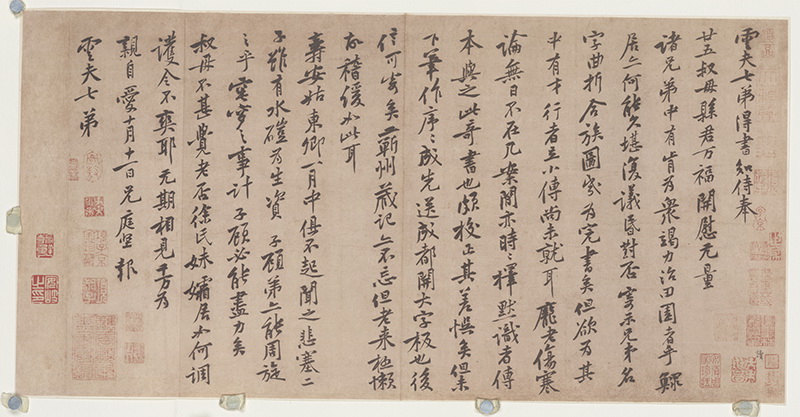 雲夫七弟得書知侍奉
廿五叔母縣君万福開慰无量
諸兄弟中有肯為衆竭力治田園者乎鰥
居亦何能久堪復議昏對否寄示兄弟名
字曲折合族圖幾為完書矣但欲為其
中有才行者立小傳尚未就耳龐老傷寒
論無日不在几案間亦時時擇默識者傳
本與之此奇書也頗校正其差悞矣但未
下筆作序序成先送成都開大字板也後
信可寄矣蘄州藏記亦不忘但老來極懶
故稽緩如此耳
壽安姑東卿一月中俱不起聞之悲塞二
子雖有水磑為生資子顧弟亦能周旋
之乎窀穸之事計子顧必能盡力矣
叔母不甚覺老否徐氏妹孀居如何調
護令不爽耶无期相見千万為
親自愛十月十一日兄庭堅報
雲夫七弟